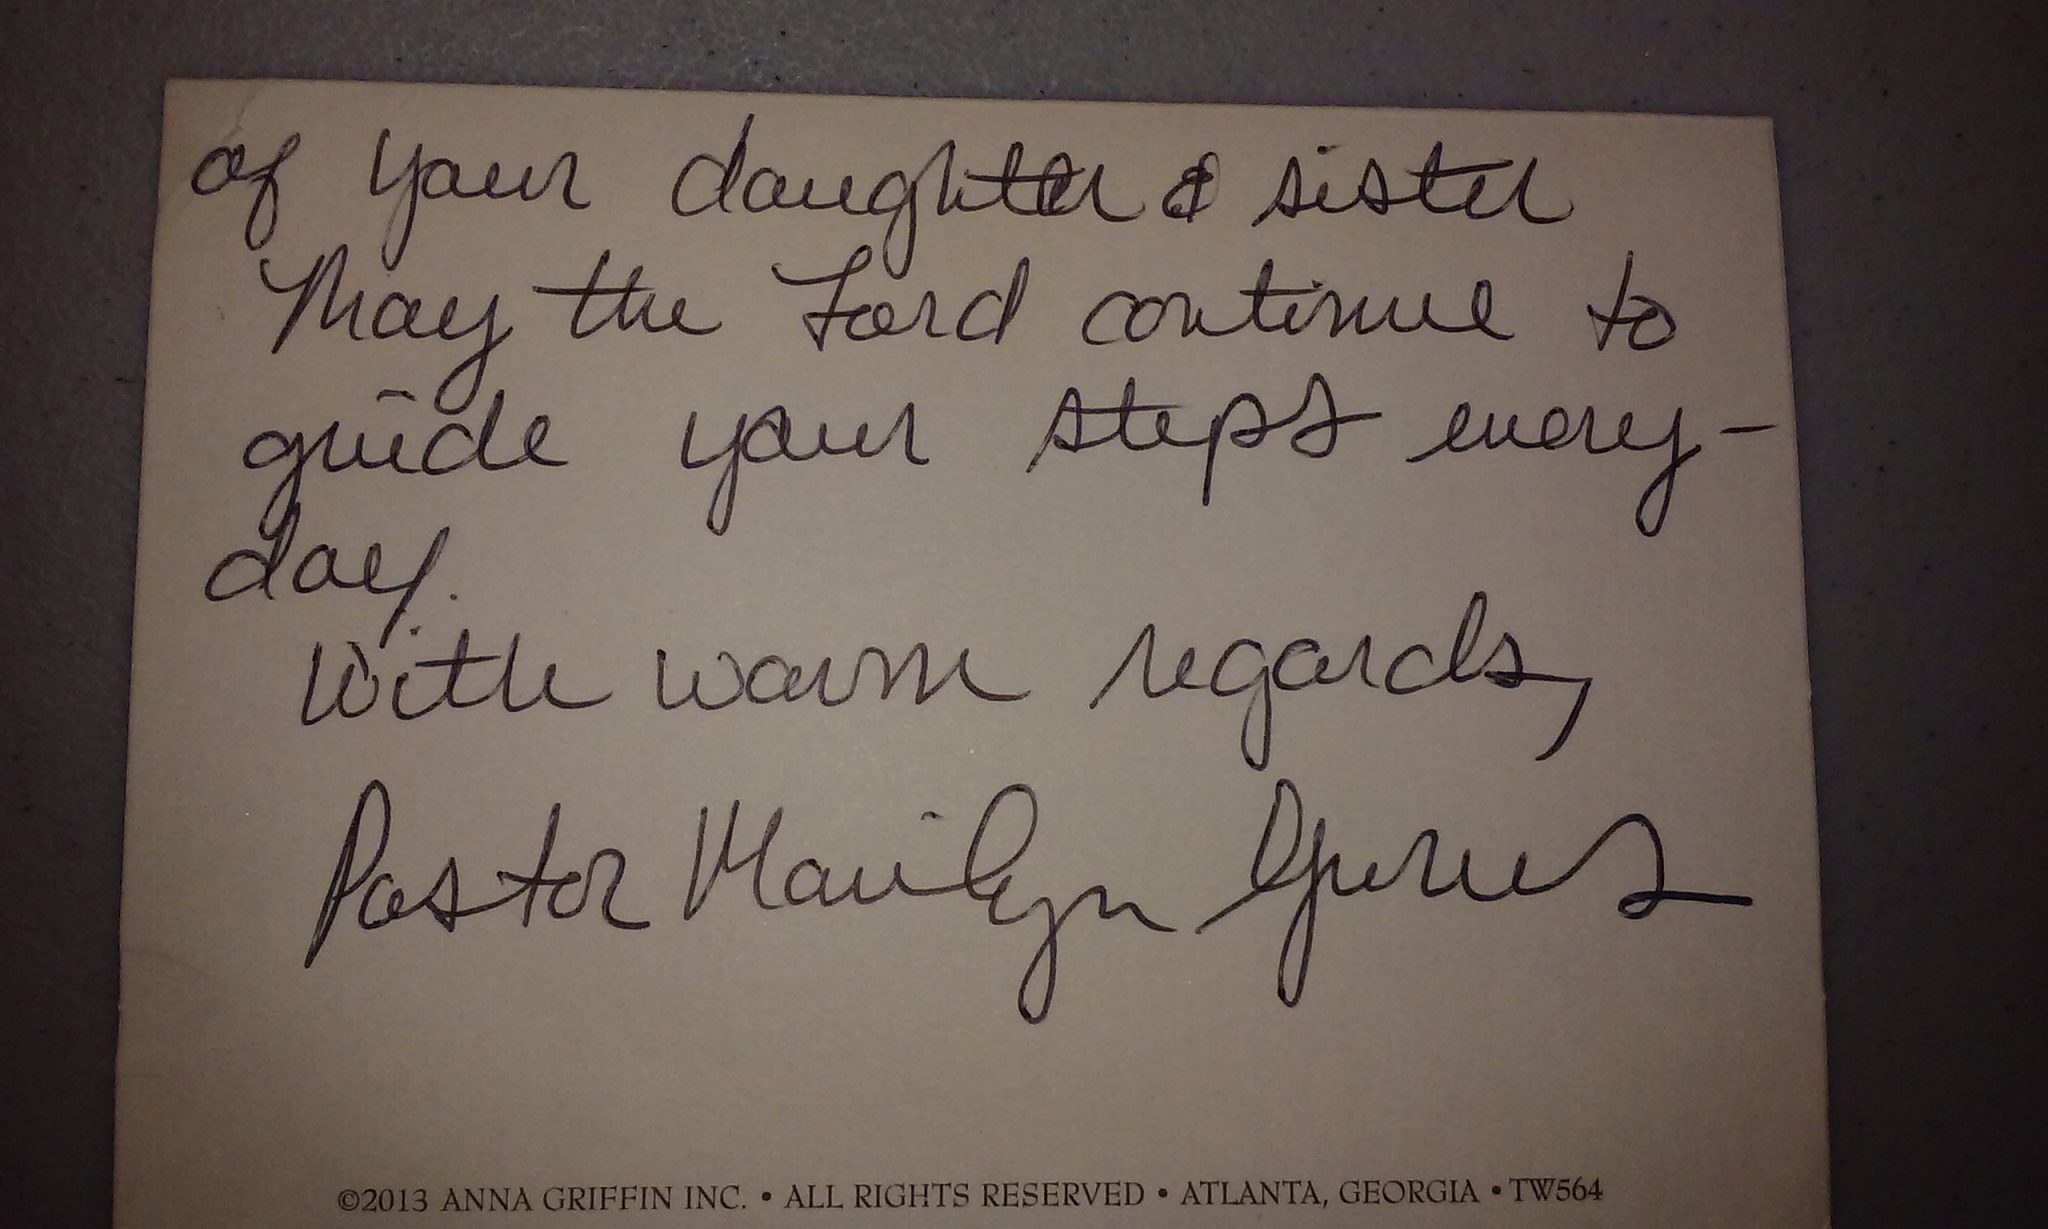 of your daughter & sister
May the Lord continue to
guide your steps every-
day.
With warm regards,
Pastor Marilyn
©2013 ANNA GRIFFIN INC. • ALL RIGHTS RESERVED • ATLANTA, GEORGIA • TW564